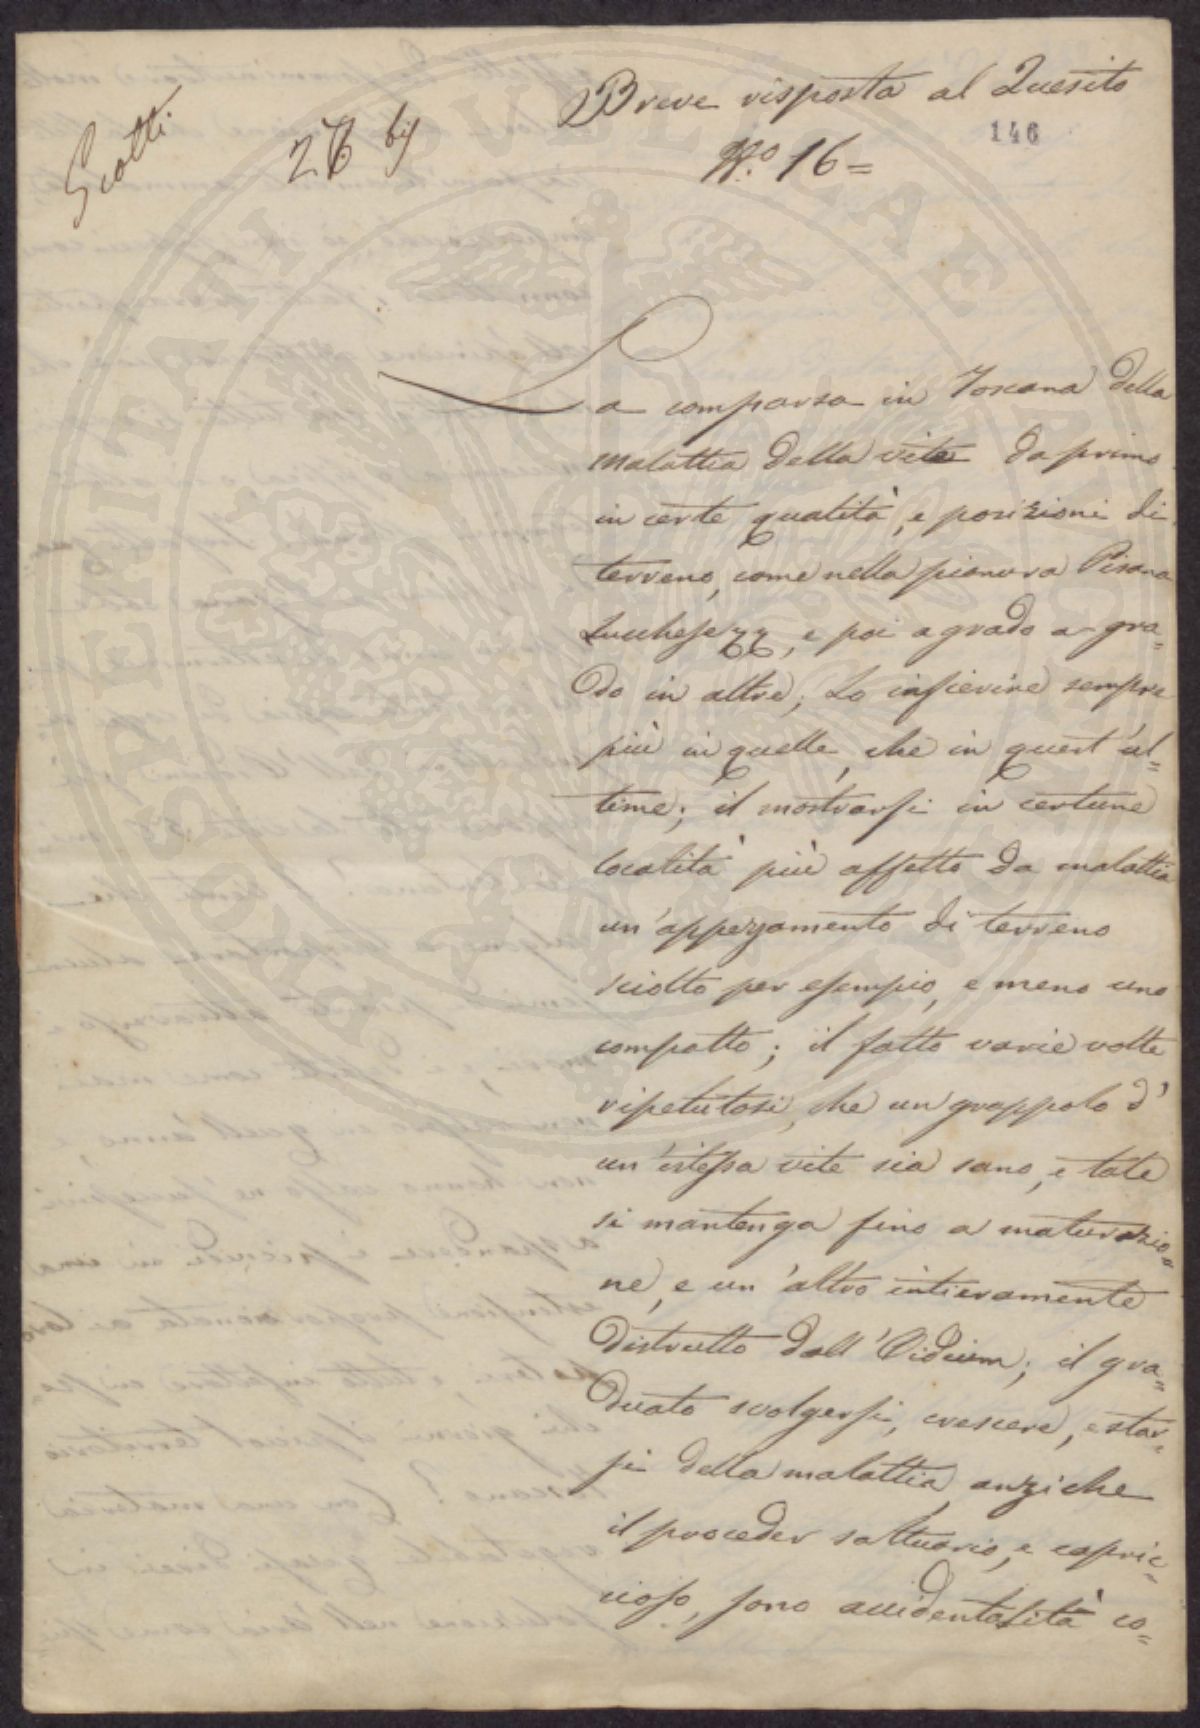 Scotti
27 bis
Breve risposta al Quesito
146
N.º 16=
La comparsa in Toscana della
malattia della vite da primo
in certe qualità, e posizioni di
terreno, come nella pianura Pisana
Lucchese
, e poi a grado a gra=
do in altre; Lo infierire sempre
più in quelle, che in quest'ul=
time; il mostrarsi in certune
località più affetto da malattia
un'appezzamento di terreno
sciolto per esempio, e meno uno
compatto; il fatto varie volte
ripetutosi, che un grappolo d'
un'istessa vite sia sano, e tale
si mantenga fino a maturazio=
ne, e un'altro intieramente
distrutto dall'Oidium; il gra=
duato svolgersi, crescere, e star=
si della malattia, anziche
il proceder saltuario, e capric=
cioso, sono accidentalità co=
HOSPITATI PVBLICAE